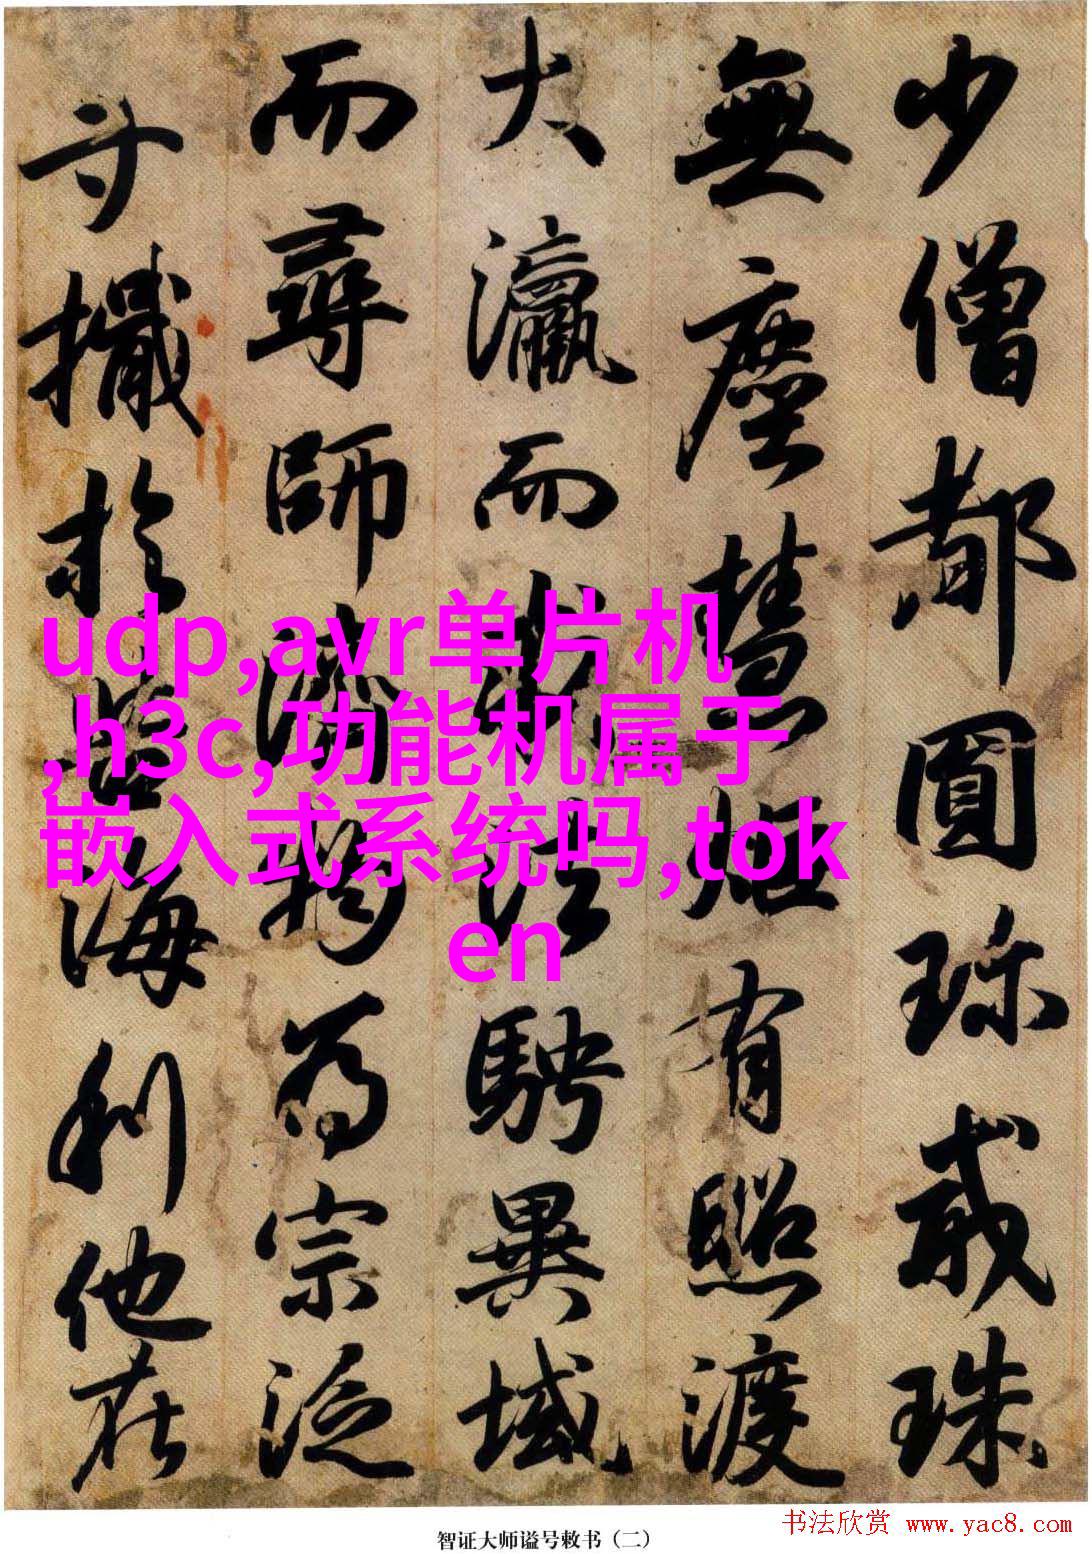 少僧都圓珍戒珠
無塵慧炬有照渡
大瀛而求法騁異域
而尋師濟物爲宗泛
寸檝於苦海利他在
udp,avr单片机
,h3c,功能机属于
嵌入式系统吗,tok
en
智证大师谥号敕书（二）
书法欣赏 www.yac8.com